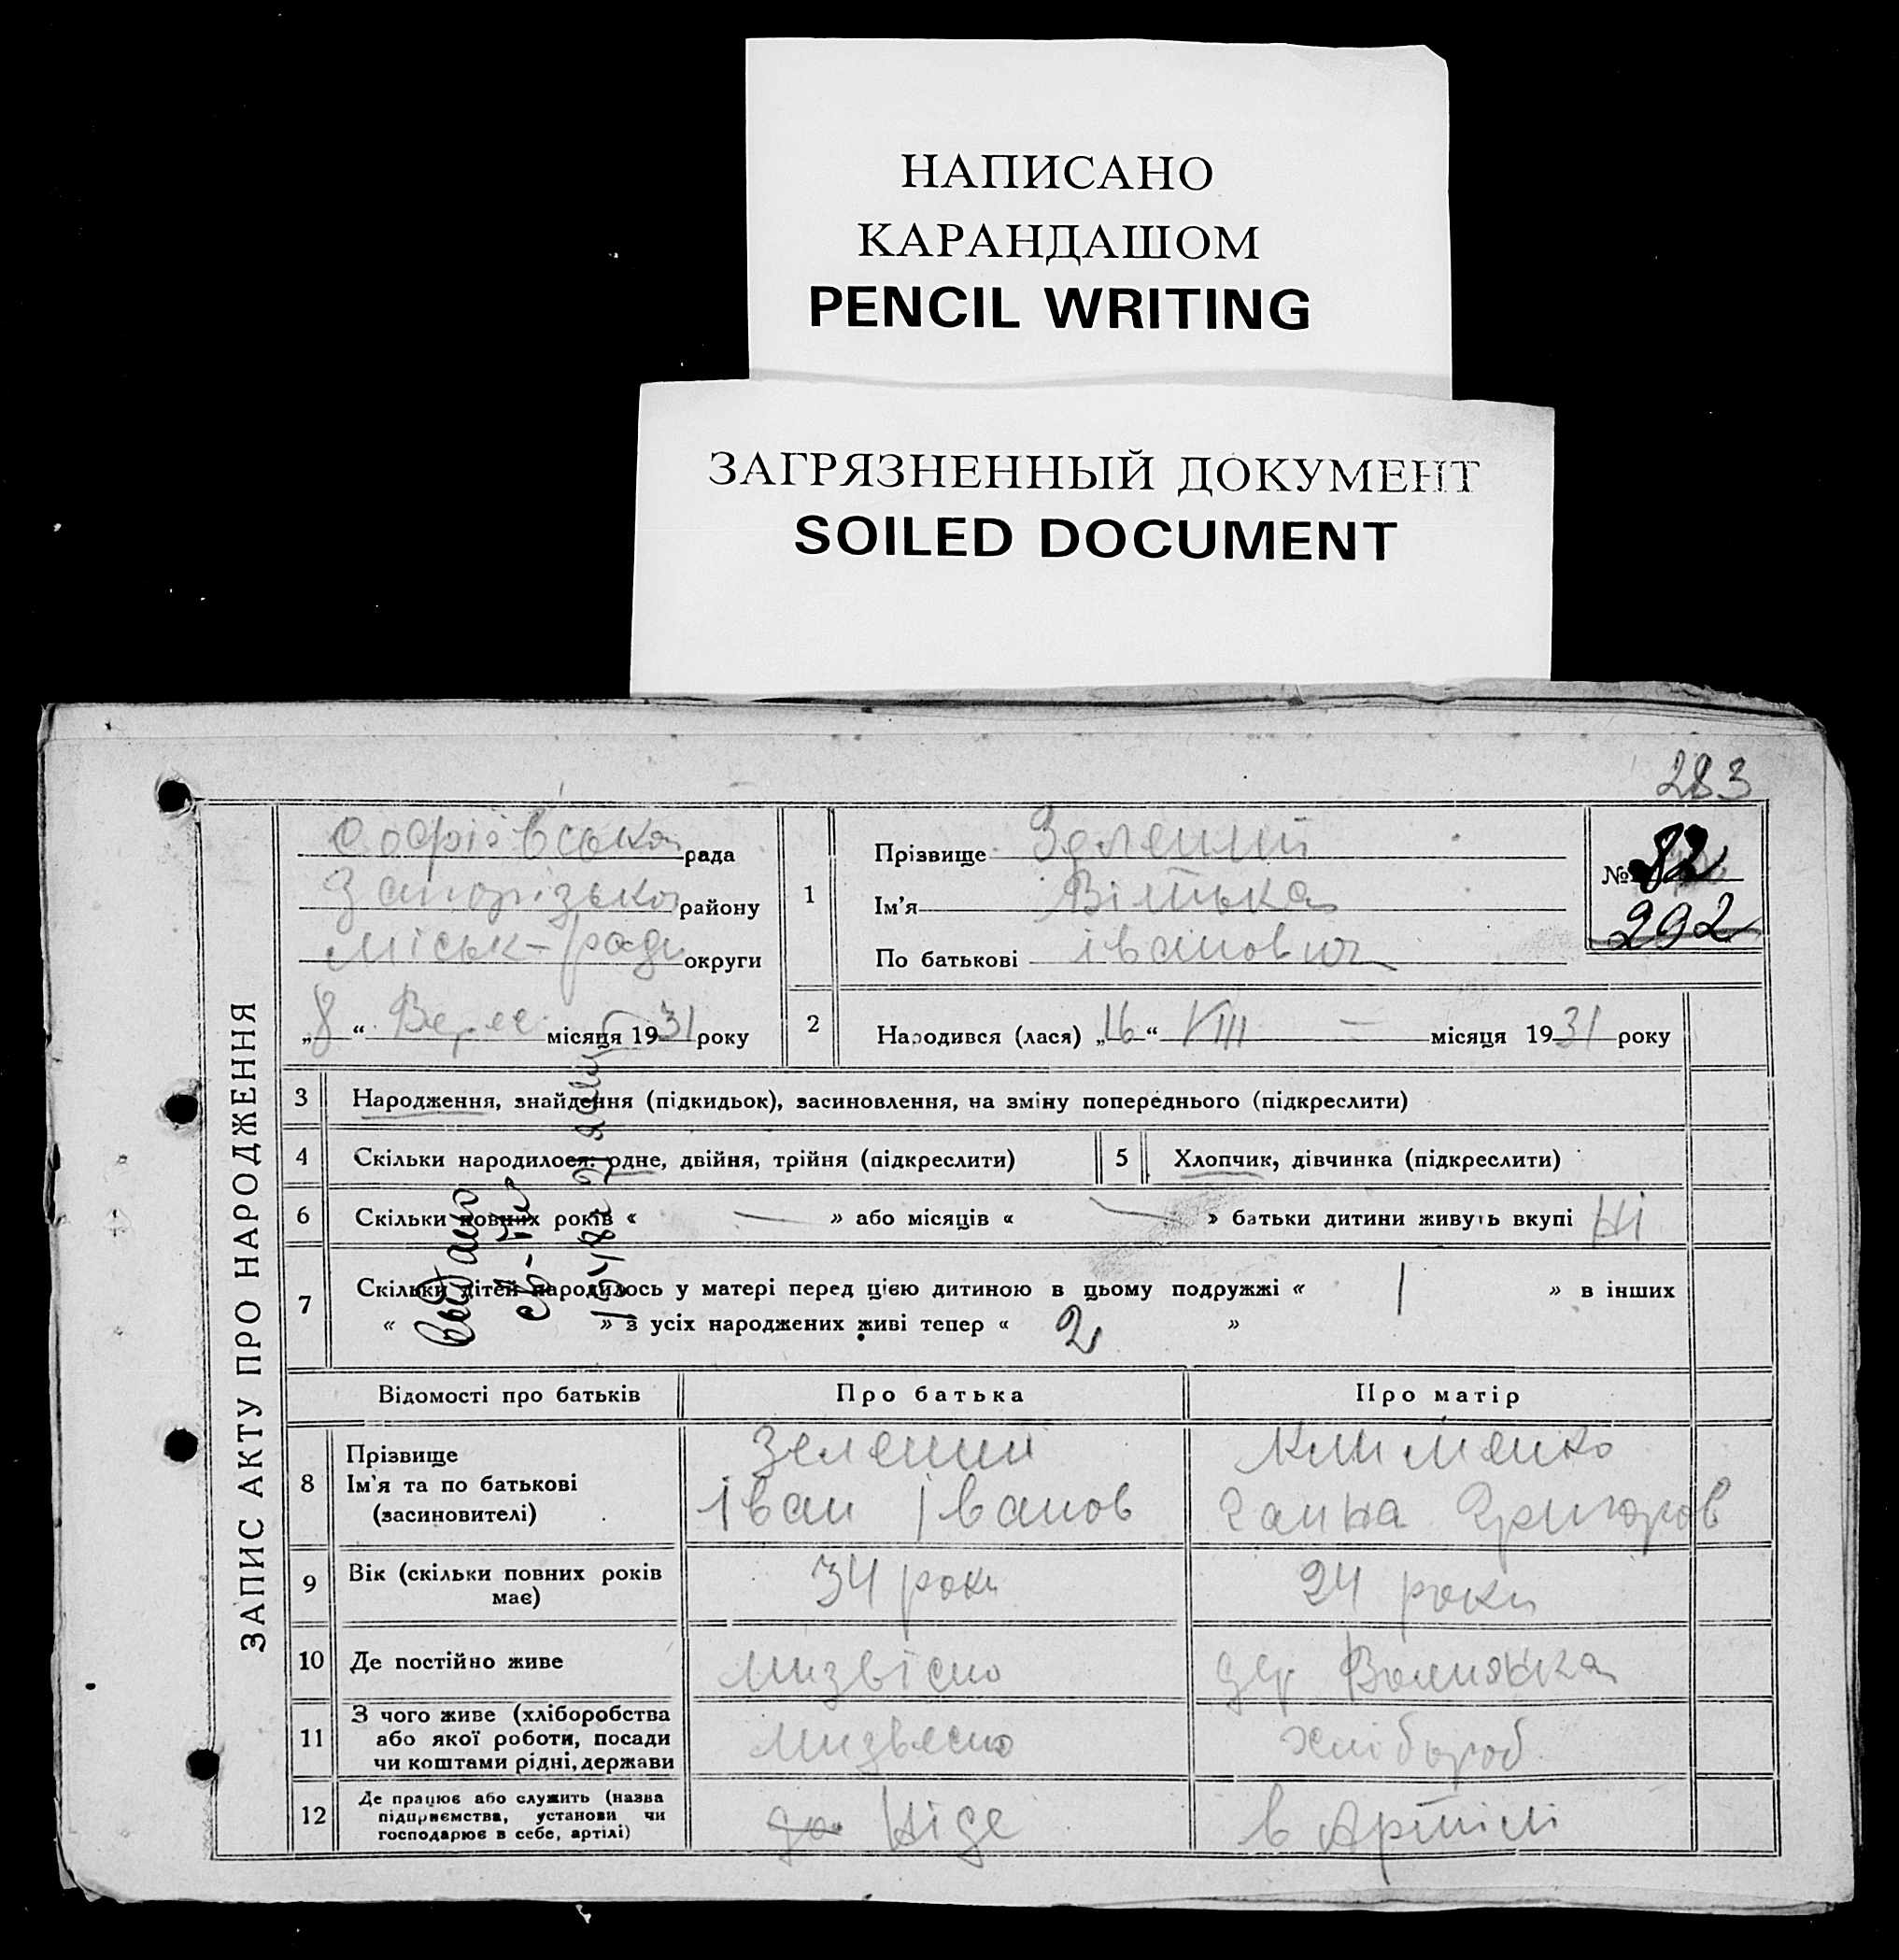 НАПИСАНО
КАРАНДАШОМ
PENCIL WRITING
ЗАГРЯЗНЕННЫЙ ДОКУМЕНТ
SOILED DOCUMENT
283
ЗАПИС АКТУ ПРО НАРОДЖЕННЯ
Софіівська рада
Запорізького району
Міськ-ради округи
„8“ Верес місяця 1931 року
1
Прізвище Зелений
Ім'я Вітька
По батькові Іванович
№ 82
292
2 Народився (лася) „16“ VIII — місяця 1931 року
3 Народження, знайдення (підкидьок), засиновлення, на зміну попереднього (підкреслити)
4 Скільки народилося: одне, двійня, трійня (підкреслити)
5 Хлопчик, дівчинка (підкреслити)
6 Скільки повних років « — » або місяців « — » батьки дитини живуть вкупі Ні
7 Скільки дітей народилось у матері перед цією дитиною в цьому подружжі « 1 » в інших
« » з усіх народжених живі тепер « 2 »
Выдано
св-во
Відомості про батьків Про батька Про матір
8 Прізвище
Ім'я та по батькові
(засиновителі)
Зелений
Іван Іванов
Клименко
Ганна Григоров
9 Вік (скільки повних років
має)
34 роки
24 роки
10 Де постійно живе
Низвісно
дер
11 З чого живе (хліборобства
або якої роботи, посади
чи коштами рідні, держави
Низвесно
хлібороб
12 Де працює або служить (назва
підприємства, установи чи
господарює в себе, артілі)
Ніде
в Артілі